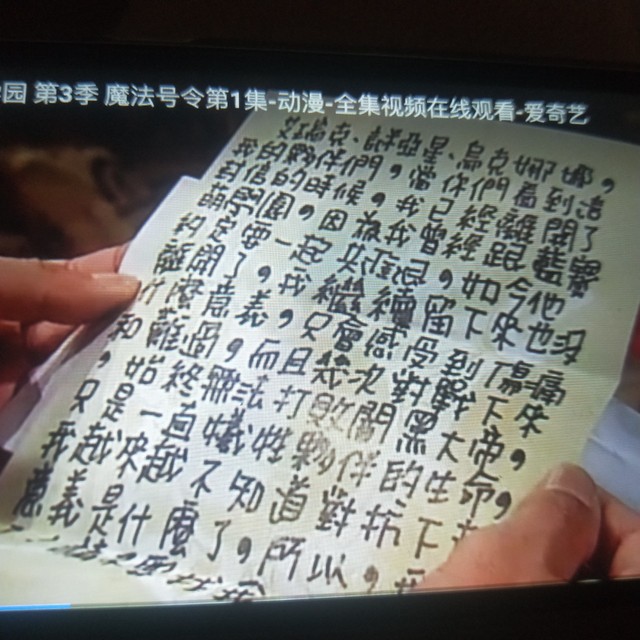 园 第3季 魔法号令第1集-动漫-全集视频在线观看-爱奇艺
艾瑞克、許亞星、烏克娜娜，
我的夥伴們，當你們看到這
封信的時候，我已經離開了
萌學園，因為我曾經跟藍寶
約定要一起 如今他
離開了，我繼續留下來也沒
什麼意義，只會感受到傷痛
和難過，而且幾次對戰下來
，始終無法打敗闇黑大帝，
只是一直犧牲夥伴的生命，
我越來越不知道對抗下
意義是什麼了，所以，